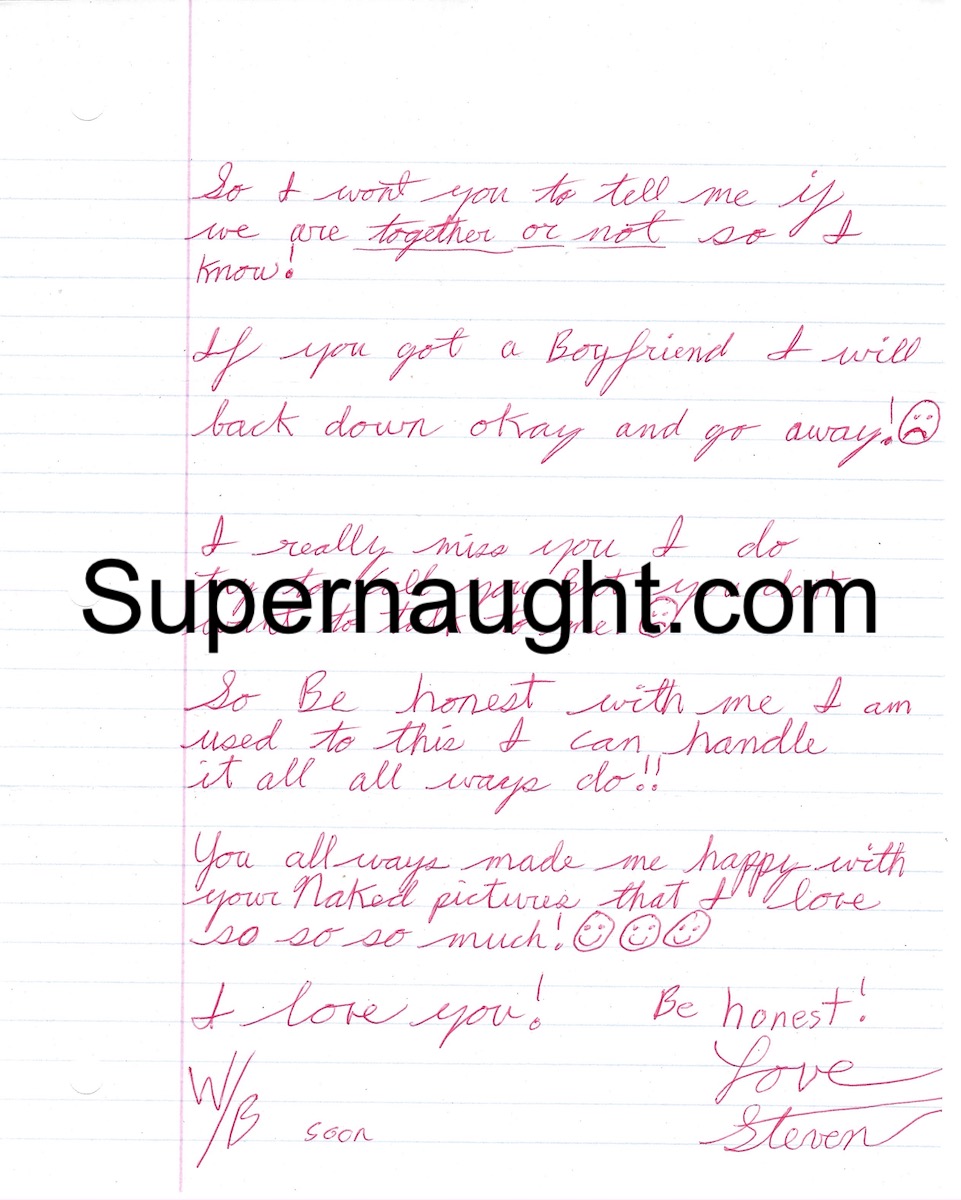 So I wont you to tell me if
we are together or not so I
know!
If you got a Boyfriend I will
back down okay and go away!
I really miss you I do
try to you But you don't
Supernaught.com
to to me
So Be honest with me I am
used to this I can handle
it all all ways do!!
You all ways made me happy with
your Naked pictures that I love
so so so much!
I love you! Be honest!
Love
W/B soon Steven